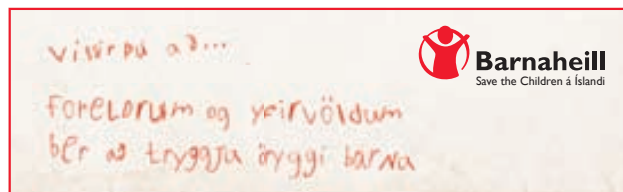 vissirþú að...
Barnaheill
Save the Children á Íslandi
foreldrum og yfirvöldum
ber að tryggja öryggi barna